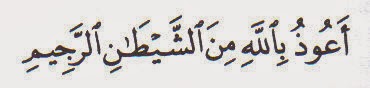 أَعُوذُ بِٱللَّهِ مِنَ ٱلشَّيْطَٰنِ ٱلرَّجِيمِ